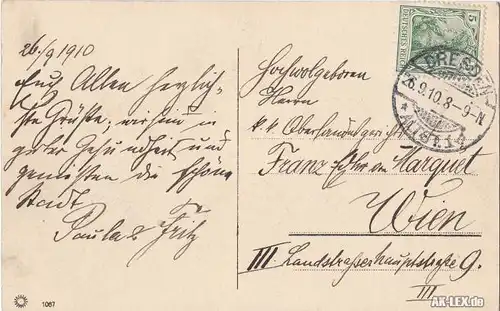 26/9 1910
Euch Allen herzlich-
ste Grüße; wir sind in
guter Gesundheit und
genießen die schöne
Stadt
Paula & Fritz
1067
5
DEUTSCHES REICH
DRESDEN
26.9.10.8-9N
* ALTST. 1
Hochwolgeboren
Herrn
k. k. Oberlandesgerichts
Franz von Marquet
Wien
III Landstrasserhauptstraße 9.
III.
AK-LEX.de